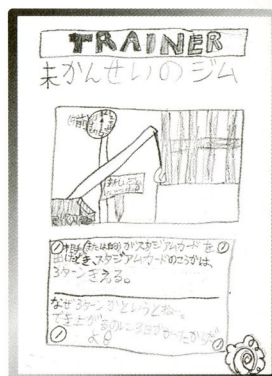 TRAINER
未かんせいのジム
(または自分)がスタジアムカードを
出したとき、スタジアムカードのこうかは、
3ターンきえる。
なぜ3ターンかというとね…
でき上がるのに3日かかったからだ
よ